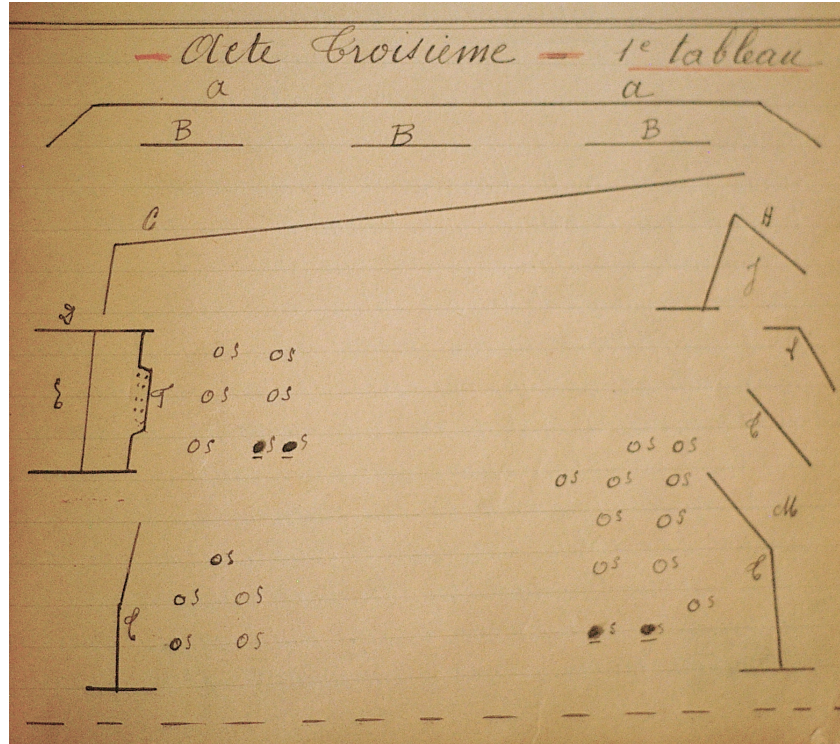 — Acte Troisième — 1e tableau
a a
B B B
C H
J
os os
os os
os os os
os os
os os os
os os
M
os os os
os os os
os os os